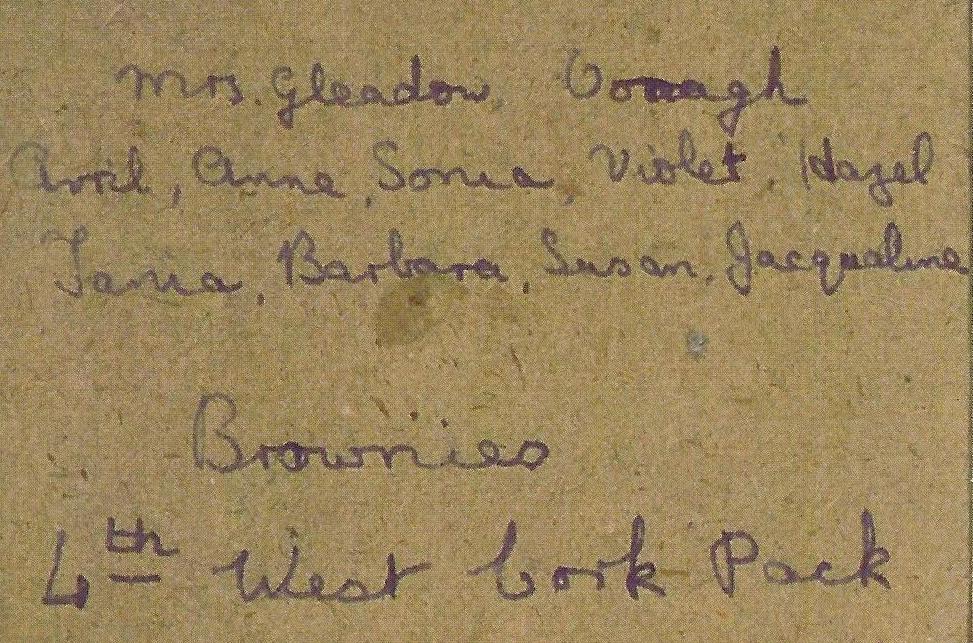 Mrs. Gleadow, Oonagh
Avril, Anne, Sonia, Violet, Hazel
Tania, Barbara, Susan, Jacqueline
Brownies
4th West Cork Pack